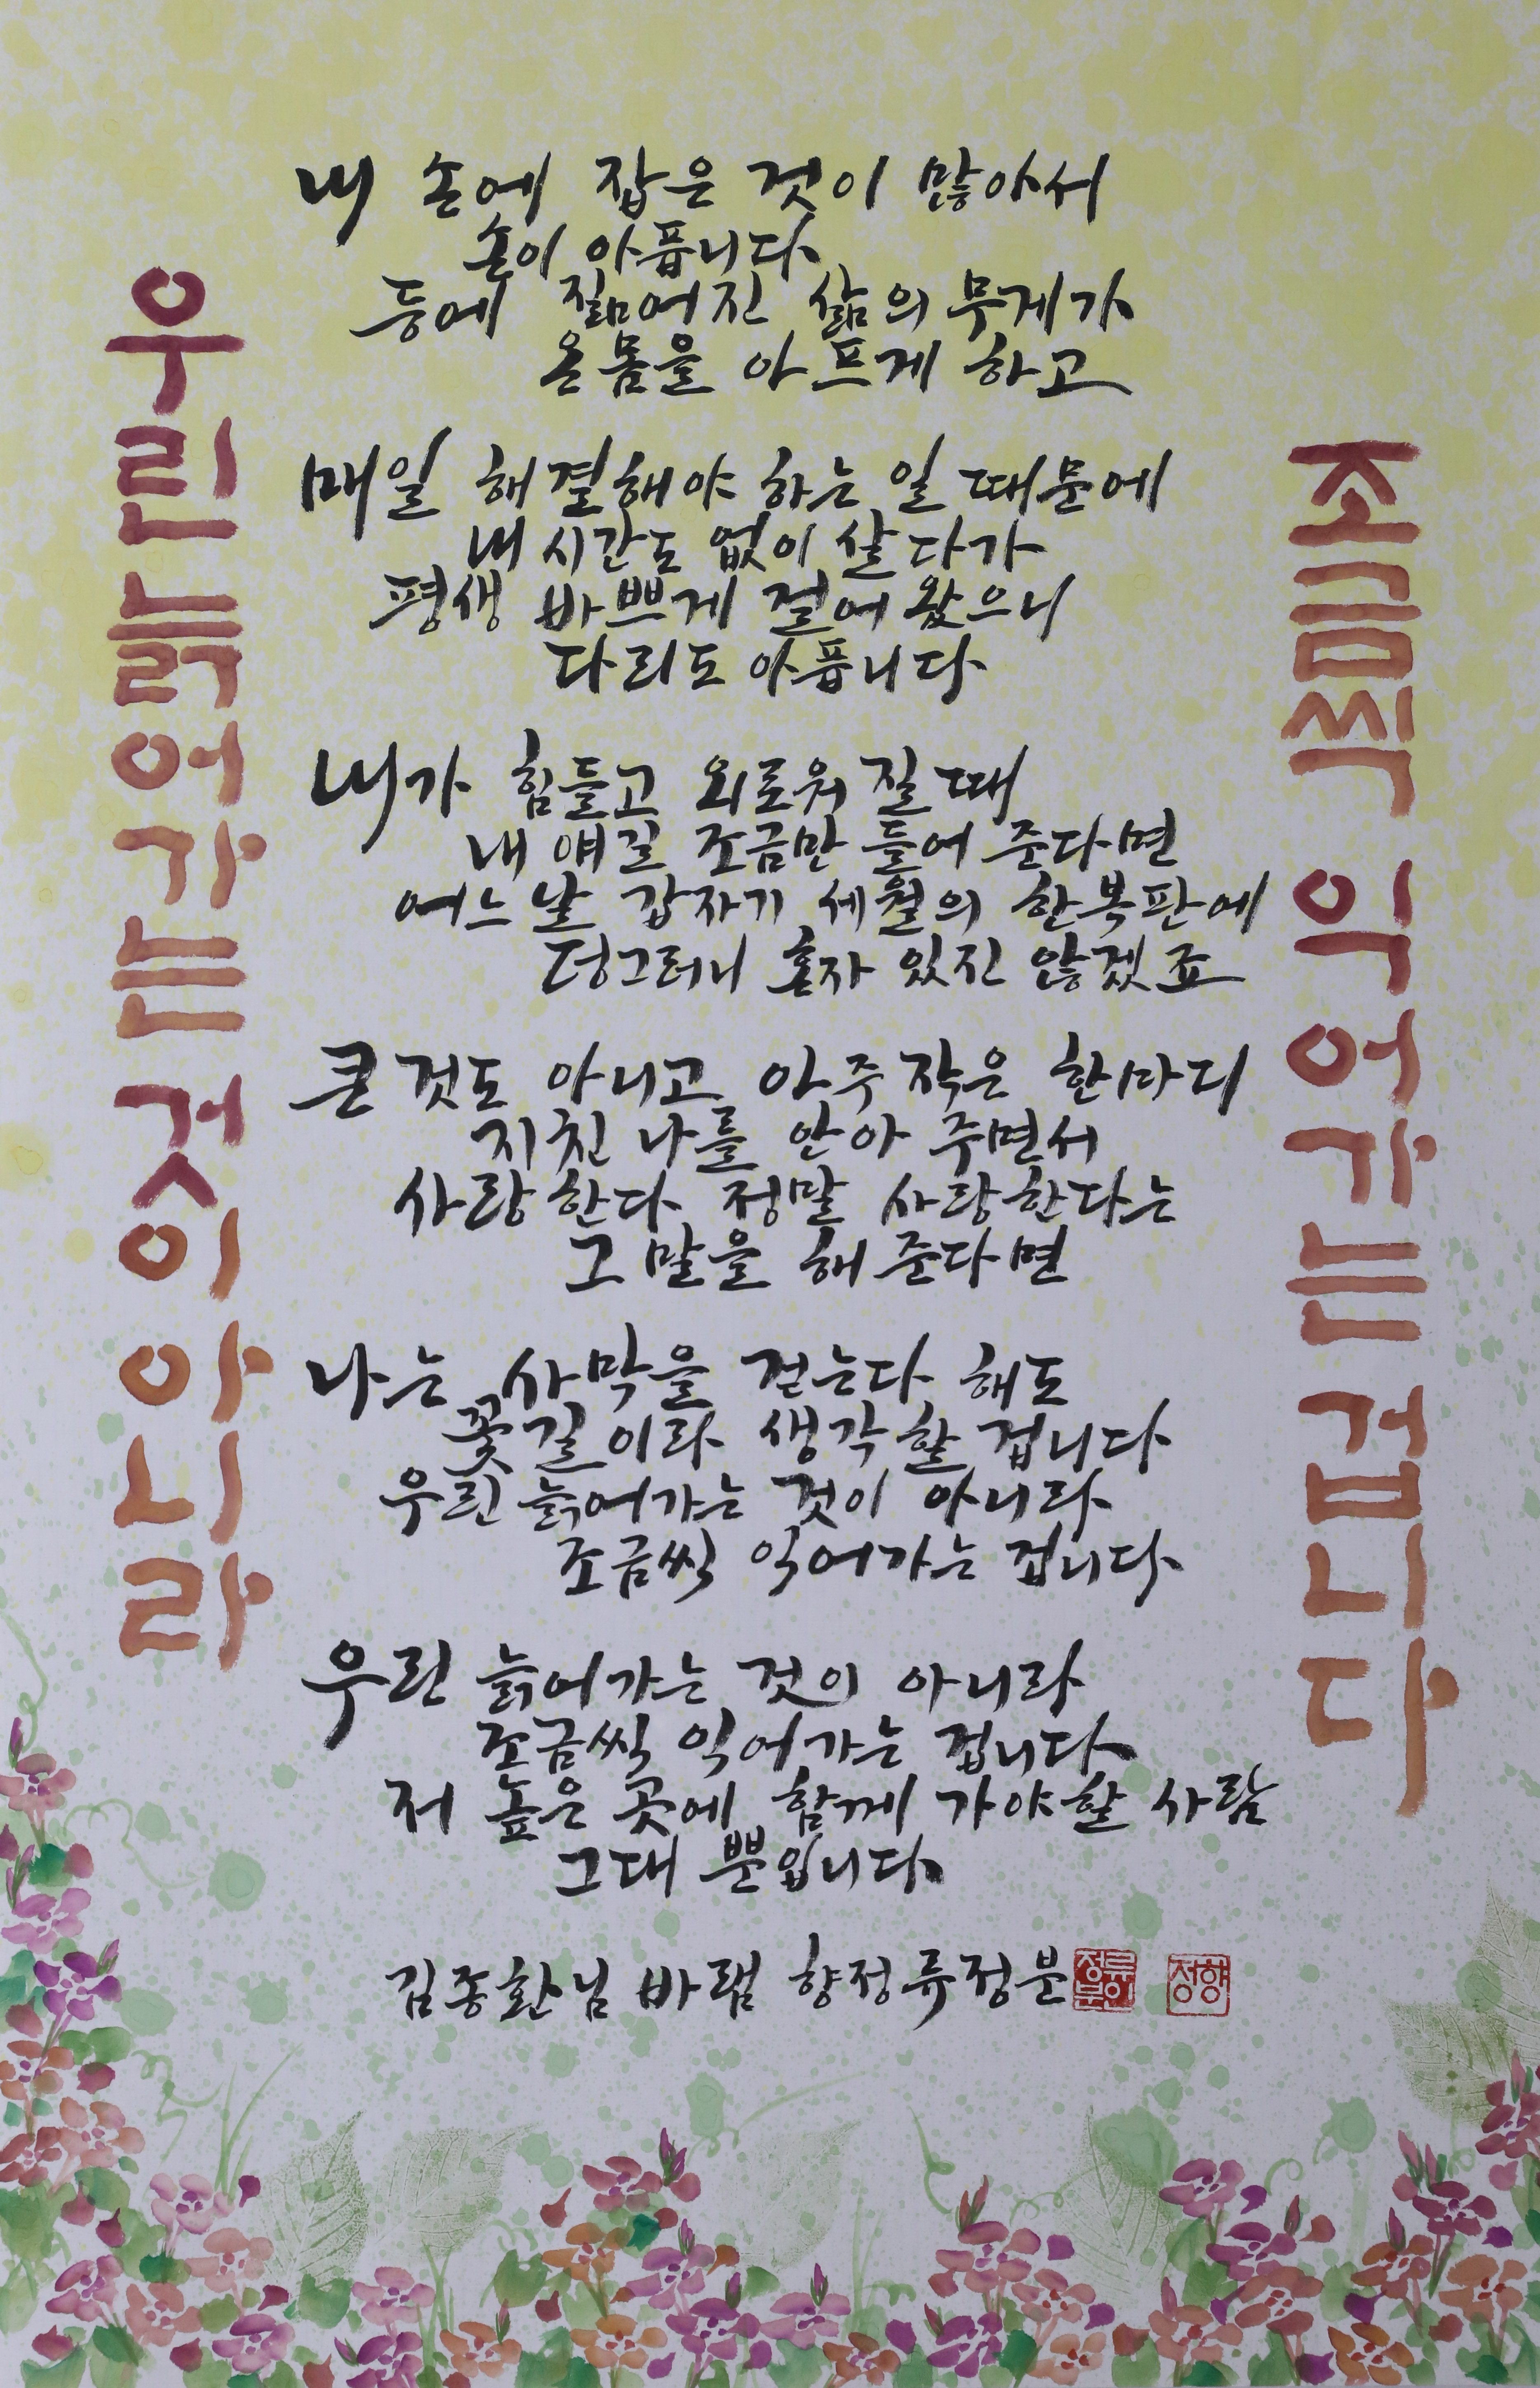 우린 늙어가는 것이 아니라
내 손에 잡은 것이 많아서
손이 아픕니다
등에 짊어진 삶의 무게가
온몸을 아프게 하고
매일 해결해야 하는 일 때문에
내 시간도 없이 살다가
평생 바쁘게 걸어 왔으니
다리도 아픕니다
내가 힘들고 외로워 질 때
내 얘길 조금만 들어 준다면
어느 날 갑자기 세월의 한복판에
덩그러니 혼자 있진 않겠죠
큰 것도 아니고 아주 작은 한마디
지친 나를 안아 주면서
사랑한다 정말 사랑한다는
그 말을 해 준다면
나는 사막을 걷는다 해도
꽃길이라 생각할 겁니다
우린 늙어가는 것이 아니라
조금씩 익어가는 겁니다
우린 늙어가는 것이 아니라
조금씩 익어가는 겁니다
저 높은 곳에 함께 가야할 사람
그대 뿐입니다
김종환님 바램 향정류정분
류정분인
향정
조금씩 익어가는 겁니다